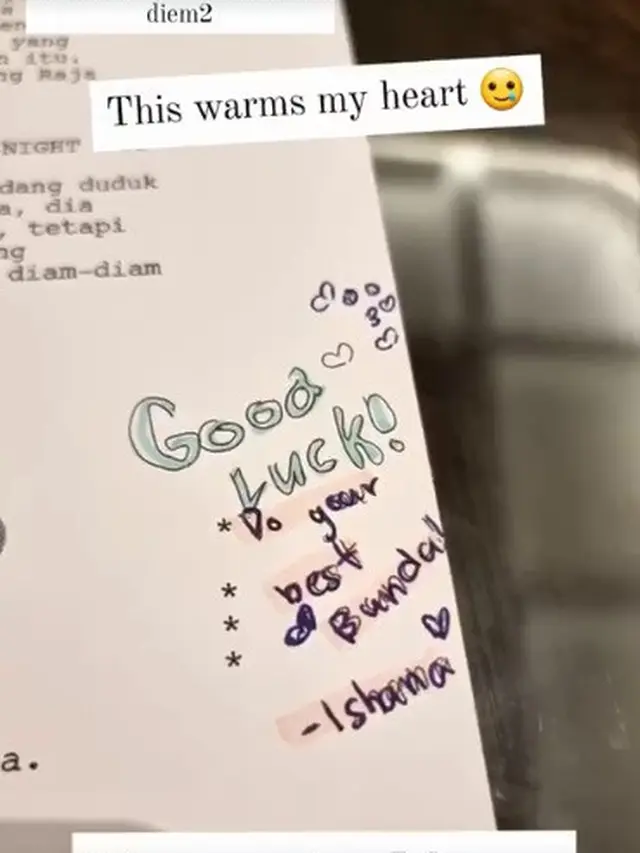 diem2
yang
itu.
This warms my heart 🥲
NIGHT
duduk
a, dia
, tetapi
diam-diam
Good
Luck!
* Do your
* best
* Bunda!
*
-Ishama
a.